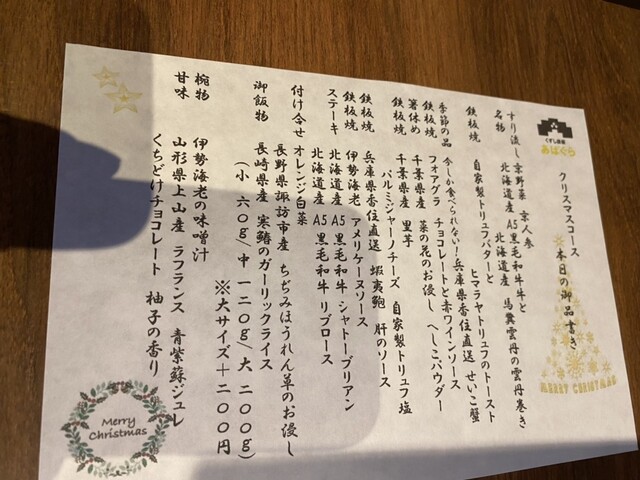 みはぐら
クリスマスコース
本日の御品書き
MERRY CHRISTMAS
すり流し 京野菜 京人参
名物 北海道産 A5黒毛和牛と
北海道産 馬糞雲丹の雲丹巻き
鉄板焼 自家製トリュフバターと
ヒマラヤトリュフのトースト
季節の品 今しか食べられない!兵庫県香住直送 せいこ蟹
鉄板焼 フォアグラ チョコレートと赤ワインソース
箸休め 千葉県産 菜の花のお浸し へしこパウダー
鉄板焼 千葉県産 里芋
パルミジャーノチーズ 自家製トリュフ塩
鉄板焼 兵庫県香住直送 蝦夷鮑 肝のソース
鉄板焼 伊勢海老 アメリケーヌソース
ステーキ 北海道産 A5黒毛和牛 シャトーブリアン
北海道産 A5黒毛和牛 リブロース
付け合せ オレンジ白菜
長野県諏訪市産 ちぢみほうれん草のお浸し
御飯物 長崎県産 寒鰆のガーリックライス
(小 六〇g/中 一二〇g/大 二〇〇g)
※大サイズ+二〇〇円
椀物 伊勢海老の味噌汁
甘味 山形県上山産 ラフランス 青紫蘇ジュレ
くちどけチョコレート 柚子の香り
Merry
Christmas